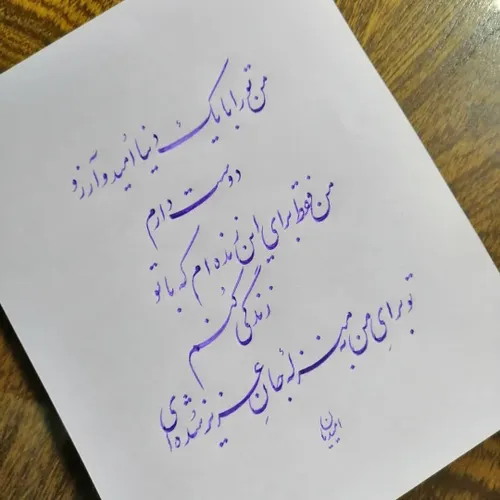 من تو را با یک دنیا اُمید و آرزو
دوست دارم
من فقط برای این زنده ام که با تو
زندگی کُنم
تو برایِ من بمنزلهٔ جانِ عزیز شده ای